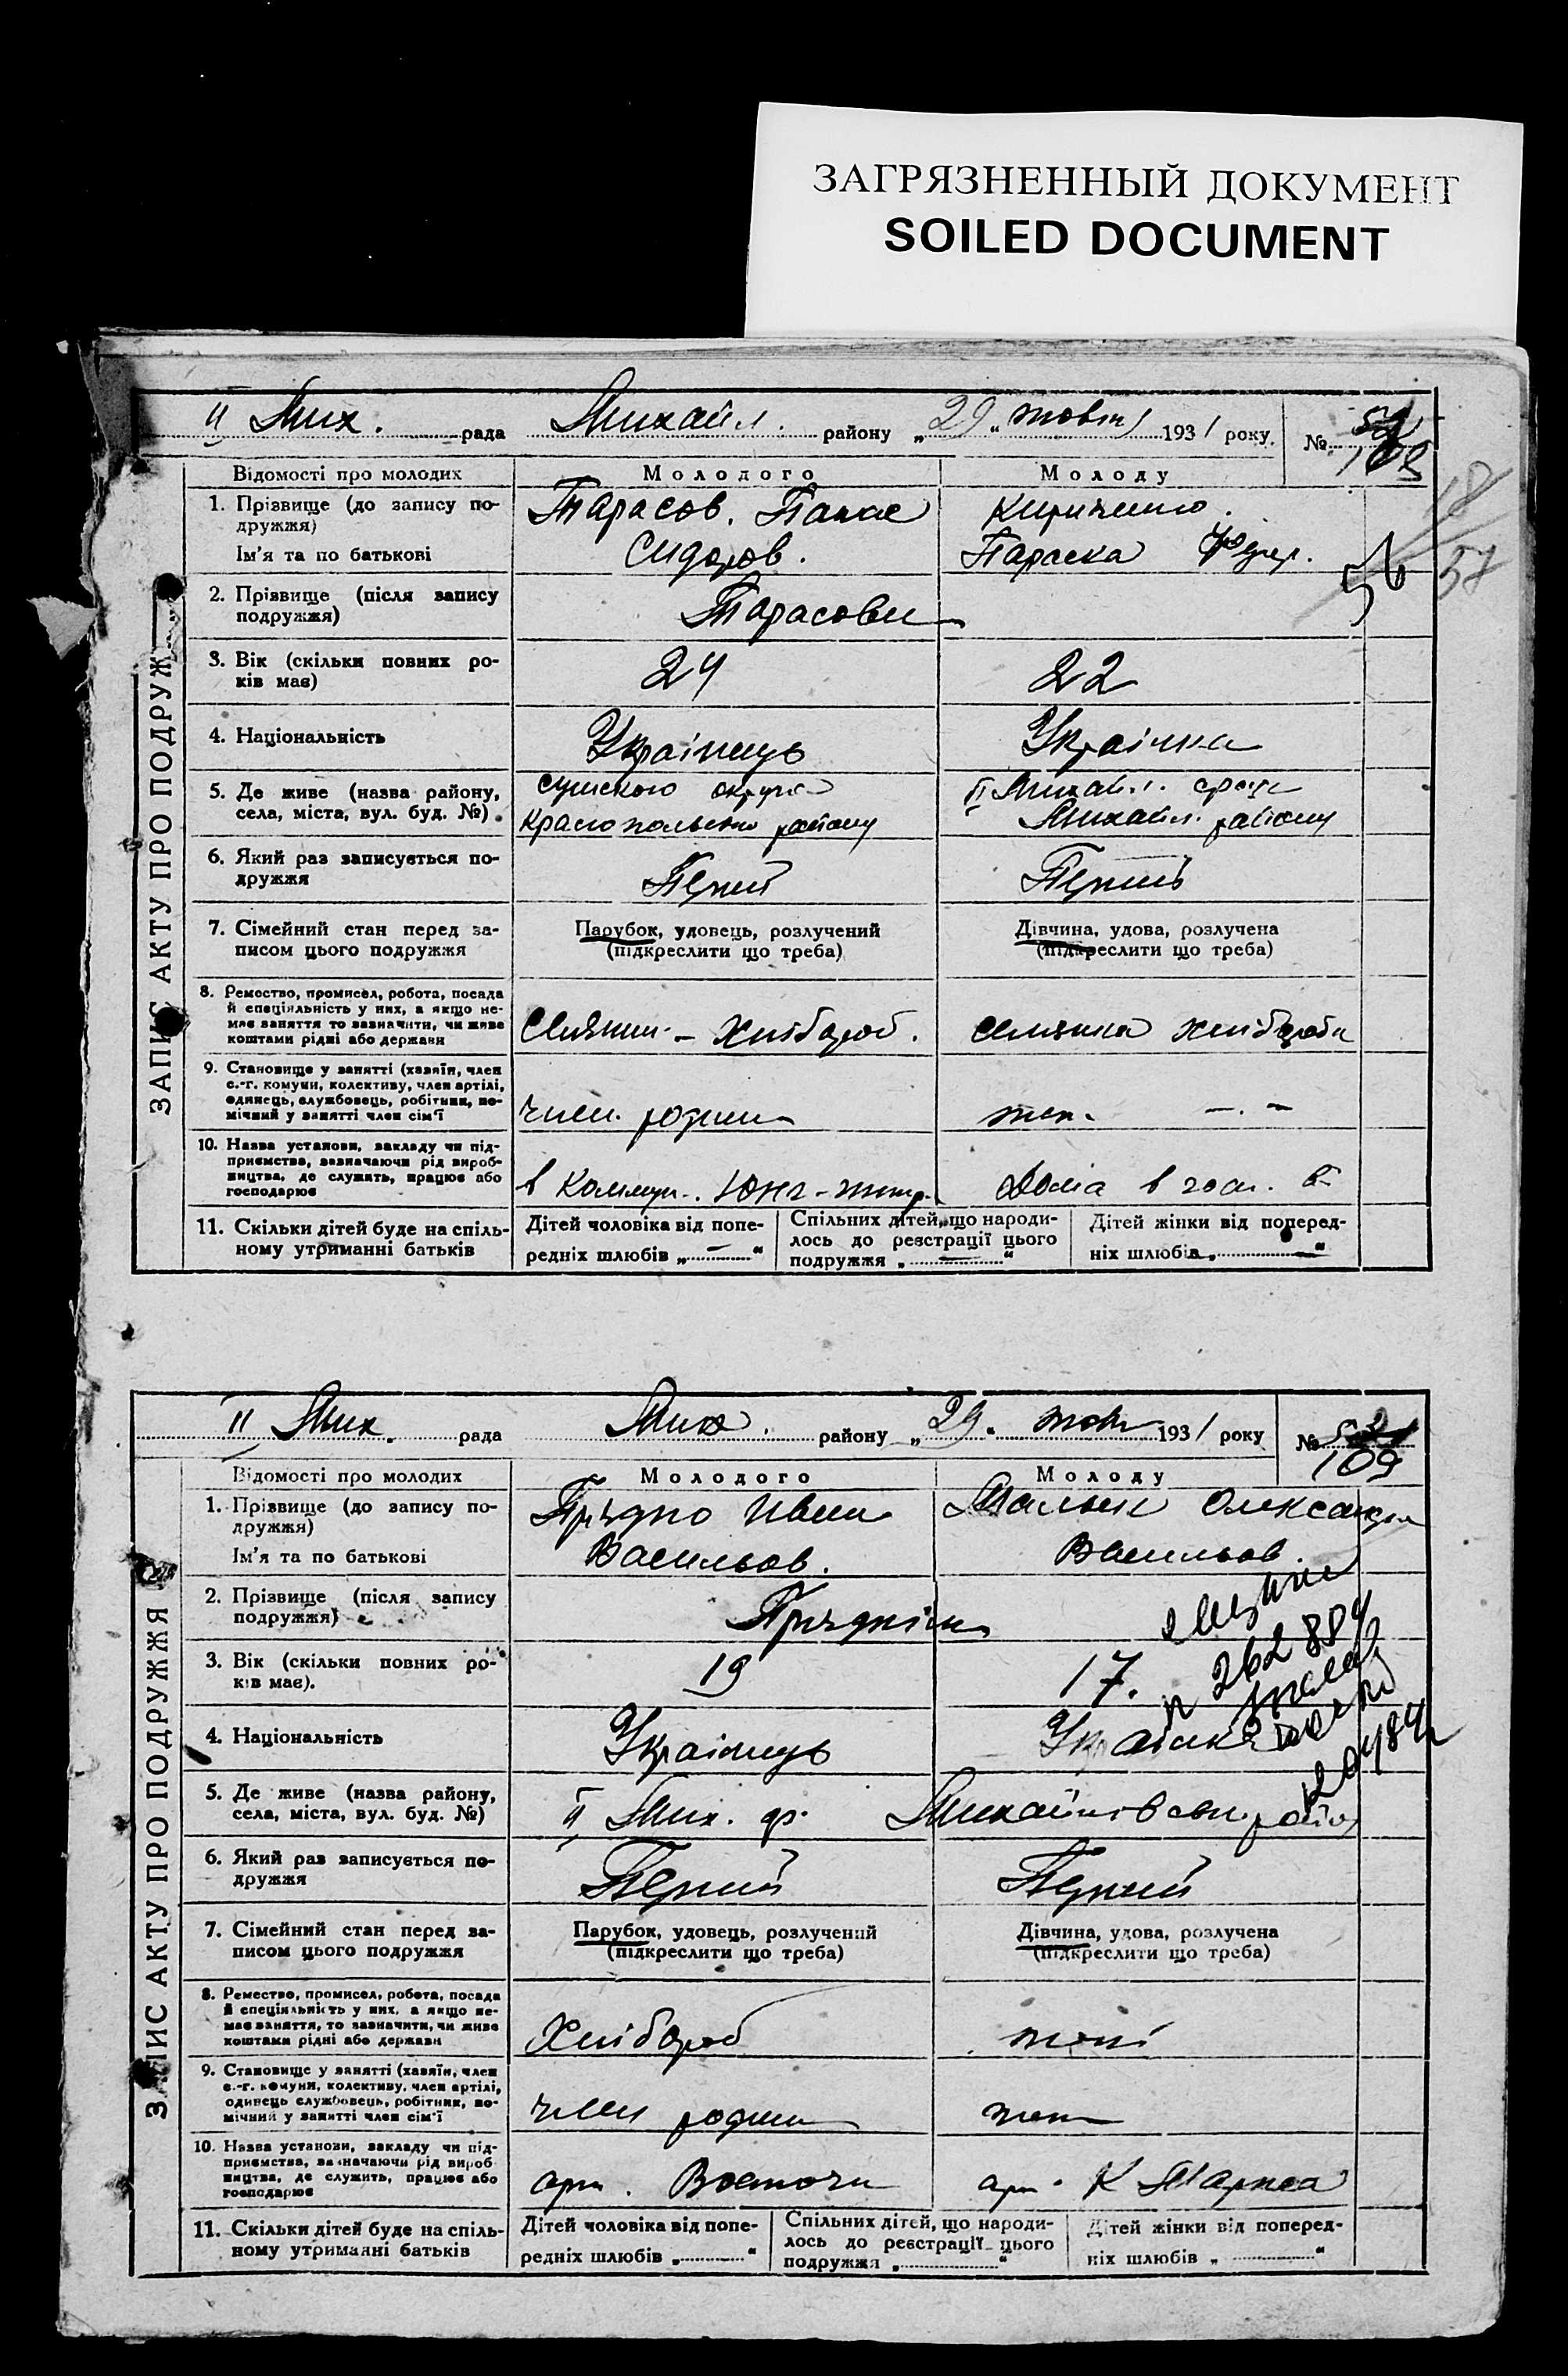 ЗАГРЯЗНЕННЫЙ ДОКУМЕНТ
SOILED DOCUMENT
II Мих. рада Михайл. району „29“ жовтн 1931 року № 108
Відомості про молодих Молодого Молоду
1. Прізвище (до запису по- Тарасов. Панас Кириченко.
дружжя)
Ім'я та по батькові Сидоров. Параска
56 57
2. Прізвище (після запису Тарасови
подружжя)
3. Вік (скільки повних ро- 24 22
ків має)
4. Національність Українець Українка
5. Де живе (назва району, сумського округи II Михайл.
села, міста, вул. буд. №) краснопольського району Михайл. району
6. Який раз записується по- Перший Перший
дружжя
7. Сімейний стан перед за- Парубок, удовець, розлучений Дівчина, удова, розлучена
писом цього подружжя (підкреслити що треба) (підкреслити що треба)
8. Ремество, промисел, робота, посада
й спеціяльність у них, а якщо не-
має заняття то зазначити, чи живе Селянин - Хлібороб. селянка хлібороби
коштами рідні або держави
9. Становище у занятті (хазяїн, член
с.-г. комуни, колективу, член артілі,
одинець, службовець, робітник, по-
мічний у занятті член сім'ї член родини -.-
10. Назва установи, закладу чи під-
приємства, зазначаючи рід вироб-
ництва, де служить, працює або в Коммун. Дома в госп.
господарює
11. Скільки дітей буде на спіль- Дітей чоловіка від попе- Спільних дітей, що народи- Дітей жінки від поперед-
ному утриманні батьків редніх шлюбів „—“ лось до реєстрації цього ніх шлюбів „—“
подружжя „—“
ЗАПИС АКТУ ПРО ПОДРУЖ
II Мих. рада Мих. району „29“ жовтн 1931 року № 109
Відомості про молодих Молодого Молоду
1. Прізвище (до запису по- Иван Олександра
дружжя)
Ім'я та по батькові Васильов. Васильов.
2. Прізвище (після запису
подружжя)
3. Вік (скільки повних ро- 19 17.
ків має).
4. Національність Українець Українка
5. Де живе (назва району, II Мих. Михайлівськ. району
села, міста, вул. буд. №)
6. Який раз записується по- Перший Перший
дружжя
7. Сімейний стан перед за- Парубок, удовець, розлучений Дівчина, удова, розлучена
писом цього подружжя (підкреслити що треба) (підкреслити що треба)
8. Ремество, промисел, робота, посада
й спеціяльність у них, а якщо не-
має заняття, то зазначити, чи живе Хлібороб
коштами рідні або держави
9. Становище у занятті (хазяїн, член
с.-г. комуни, колективу, член артілі,
одинець службовець, робітник, по-
мічний у занятті член сім'ї член родини
10. Назва установи, закладу чи під-
приємства, зазначаючи рід вироб-
ництва, де служить, працює або арт. арт. К Маркса
господарює
11. Скільки дітей буде на спіль- Дітей чоловіка від попе- Спільних дітей, що народи- Дітей жінки від поперед-
ному утриманні батьків редніх шлюбів „“ лось до реєстрації цього ніх шлюбів „“
подружжя „“
ЗАПИС АКТУ ПРО ПОДРУЖЖЯ